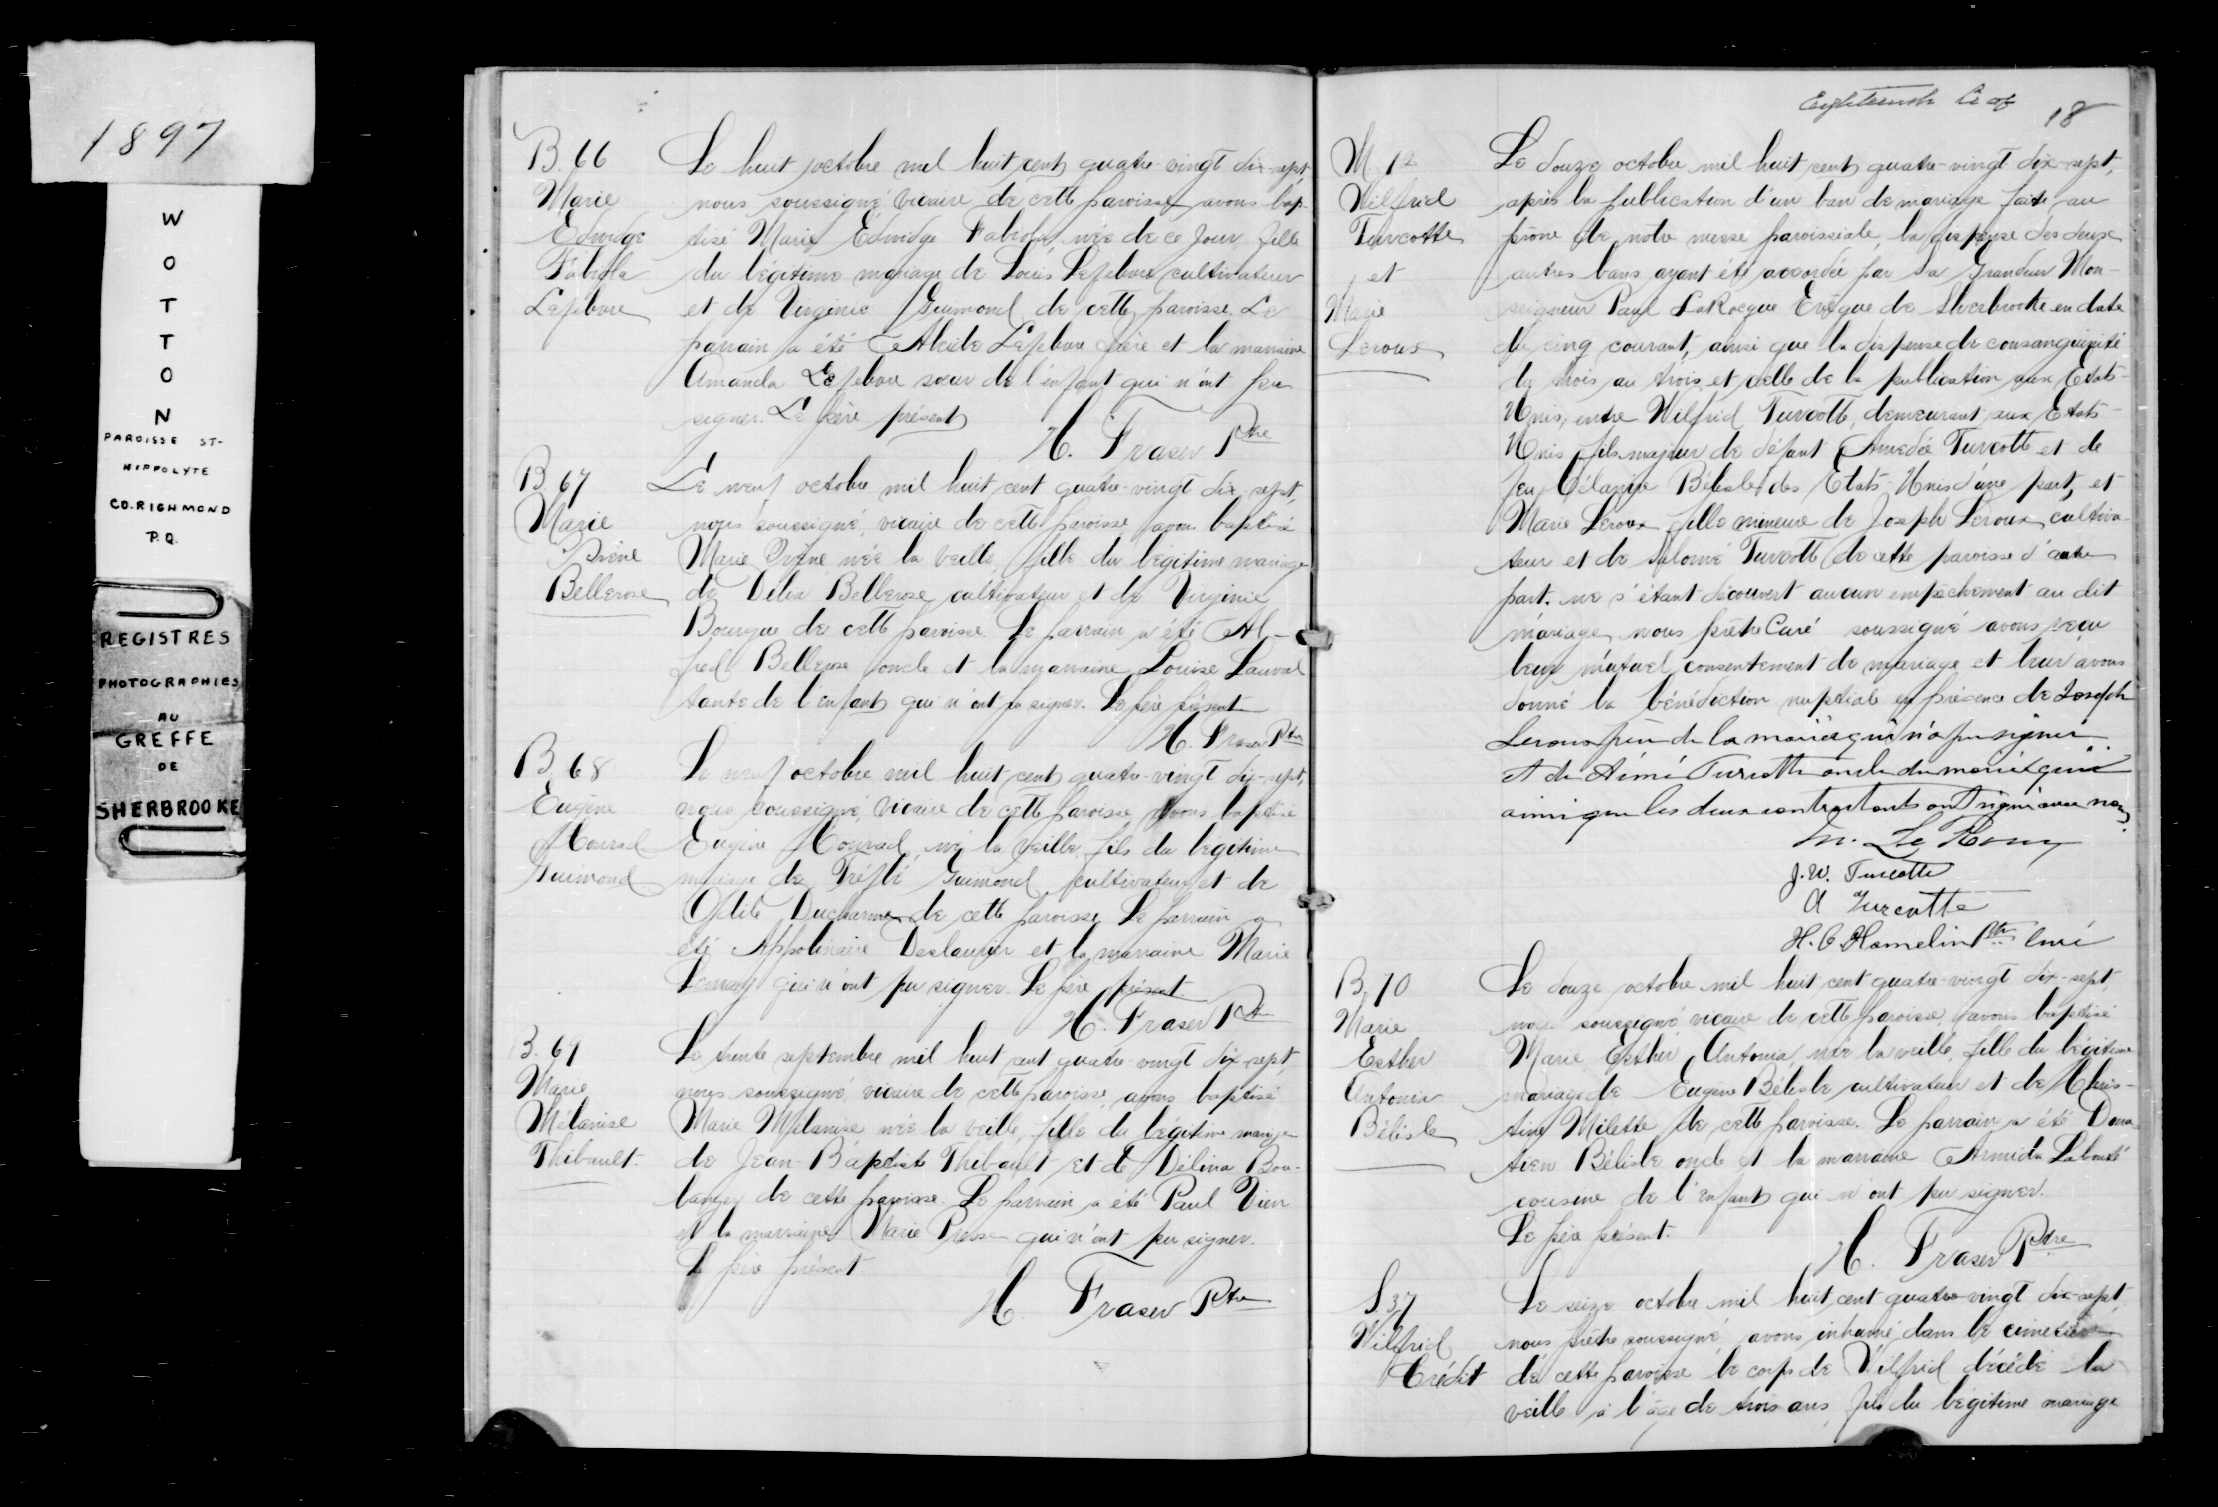 1897
W
O
T
T
O
N
PAROISSE ST-
HIPPOLYTE
CO. RICHMOND
P.Q.
REGISTRES
PHOTOGRAPHIES
AU
GREFFE
DE
SHERBROOKE
B. 66
Marie
Edwidge
Fabiola
Lefebvre
Le huit octobre mil huit cent quatre-vingt dix-sept,
nous soussigné, vicaire de cette paroisse avons bap-
tisé Marie Edwidge Fabiola, née de ce jour fille
du légitime mariage de Louis Lefebvre cultivateur
et de Virginie Guimond de cette paroisse. Le
parrain a été Alcide Lefebvre frère et la marraine
Amanda Lefebvre sœur de l'enfant qui n'ont pu
signer. Le père présent
H. Fraser Ptre
B. 67
Marie
Irène
Bellerose
Le neuf octobre mil huit cent quatre-vingt dix sept,
nous soussigné, vicaire de cette paroisse avons baptisé
Marie Irène née la veille, fille du légitime mariage
de Délix Bellerose cultivateur et de Virginie
Bourque de cette paroisse. Le parrain a été Al-
fred Bellerose oncle et la marraine Louise Lauval
tante de l'enfant qui n'ont pu signer. Le père présent
H. Fraser Ptre
B. 68
Eugène
Honorad
Guimond
Le neuf octobre mil huit cent quatre-vingt dix-sept,
nous soussigné, vicaire de cette paroisse, avons baptisé
Eugène né la veille, fils du légitime
mariage de Tréflé Guimond, cultivateur et de
Odile Ducharme de cette paroisse. Le parrain a
été Appolinaire Deslaurier et la marraine Marie
Lemay qui n'ont pu signer. Le père présent.
H. Fraser Ptre
B. 69
Marie
Mélanise
Thibault.
Le trente septembre mil huit cent quatre-vingt dix-sept,
nous soussigné, vicaire de cette paroisse, avons baptisé
Marie Mélanise née la veille, fille du légitime mariage
de Jean-Baptiste Thibault et de Délina Bou-
langer de cette paroisse. Le parrain a été Paul Vien
et la marraine Marie qui n'ont pu signer.
Le père présent
H. Fraser Ptre
Eighteenth leaf
18
M. 12
Wilfrid
Turcotte
et
Marie
Leroux
Le douze octobre mil huit cent quatre-vingt dix-sept,
après la publication d'un ban de mariage faite au
prône de notre messe paroissiale, la dispense des deux
autres bans ayant été accordée par Sa Grandeur Mon-
seigneur Paul LaRocque Evêque de Sherbrooke en date
du cinq courant, ainsi que la dispense de consanguinité
du trois au trois et celle de la publication aux Etats-
Unis, entre Wilfrid Turcotte, demeurant aux Etats-
Unis fils majeur de défunt Amédée Turcotte et de
feu Bélisle des Etats-Unis d'une part, et
Marie Leroux fille mineure de Joseph Leroux cultiva-
teur et de Salomé Turcotte de cette paroisse d'autre
part. ne s'étant découvert aucun empêchement au dit
mariage, nous prêtre Curé soussigné avons reçu
leur mutuel consentement de mariage et leur avons
donné la bénédiction nuptiale en présence de Joseph
Leroux père de la mariée qui n'a pu signer
et de Aimé Turcotte oncle du marié qui
ainsi que les deux contractants ont signé avec nous.
M. Le
J. W. Turcotte
A Turcotte
H. C. Hamelin Ptre Curé
B. 70
Marie
Esther
Antonia
Bélisle
Le douze octobre mil huit cent quatre-vingt dix-sept,
nous soussigné, vicaire de cette paroisse, avons baptisé
Marie Esther Antonia, née la veille, fille du légitime
mariage de Eugène Bélisle cultivateur et de Chris-
tine Milette de cette paroisse. Le parrain a été Dona-
tien Bélisle oncle et la marraine Armida Labonté
cousine de l'enfant qui n'ont pu signer.
Le père présent.
H. Fraser Ptre
S. 37
Wilfrid
Crédit
Le seize octobre mil huit cent quatre-vingt dix-sept,
nous prêtre soussigné, avons inhumé dans le cimetière
de cette paroisse le corps de Wilfrid décédé la
veille à l'âge de trois ans, fils du légitime mariage